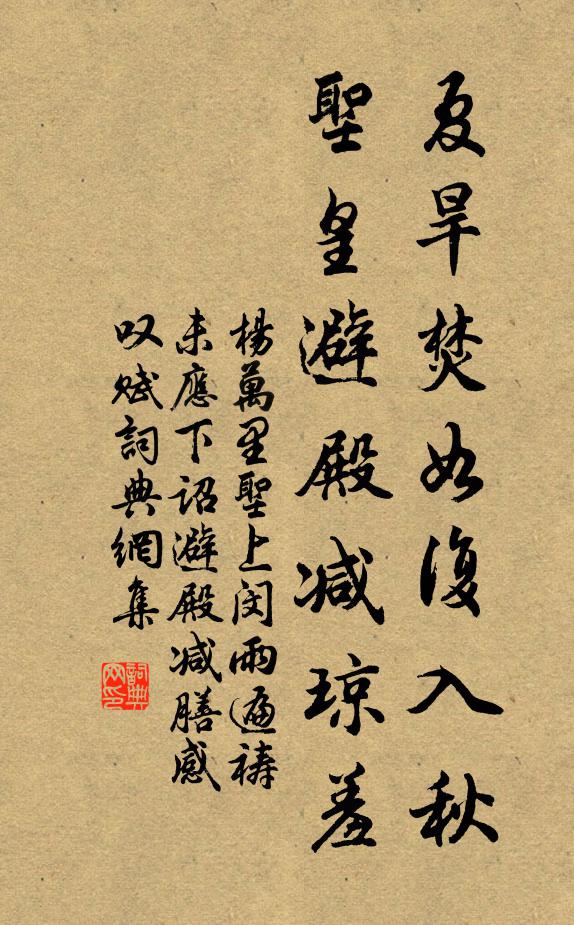 夏旱焚如復入秋
聖皇避殿减瓊羞
楊萬里聖上閔雨遍禱
未應下詔避殿减膳感
叹賦詞典網集
詞典
网印